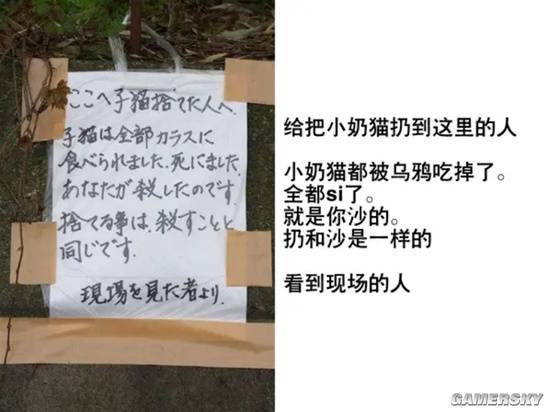 ここへ子猫捨てた人へ
子猫は全部カラスに
食べられました。死にました。
あなたが殺したのです。
捨てる事は、殺すことと
同じです。
現場を見た者より.
给把小奶猫扔到这里的人
小奶猫都被乌鸦吃掉了。
全都si了。
就是你沙的。
扔和沙是一样的
看到现场的人
GAMERSKY